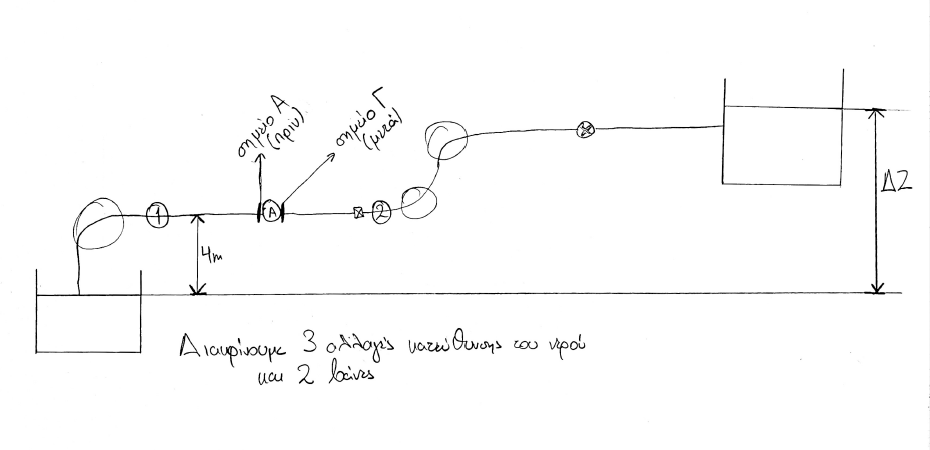 σημείο Α
(πριν)
σημείο Γ
(μετά)
1
Α
2
4m
ΔΖ
Διακρίνουμε 3 αλλαγές κατεύθυνσης του νερού
και 2 βάνες